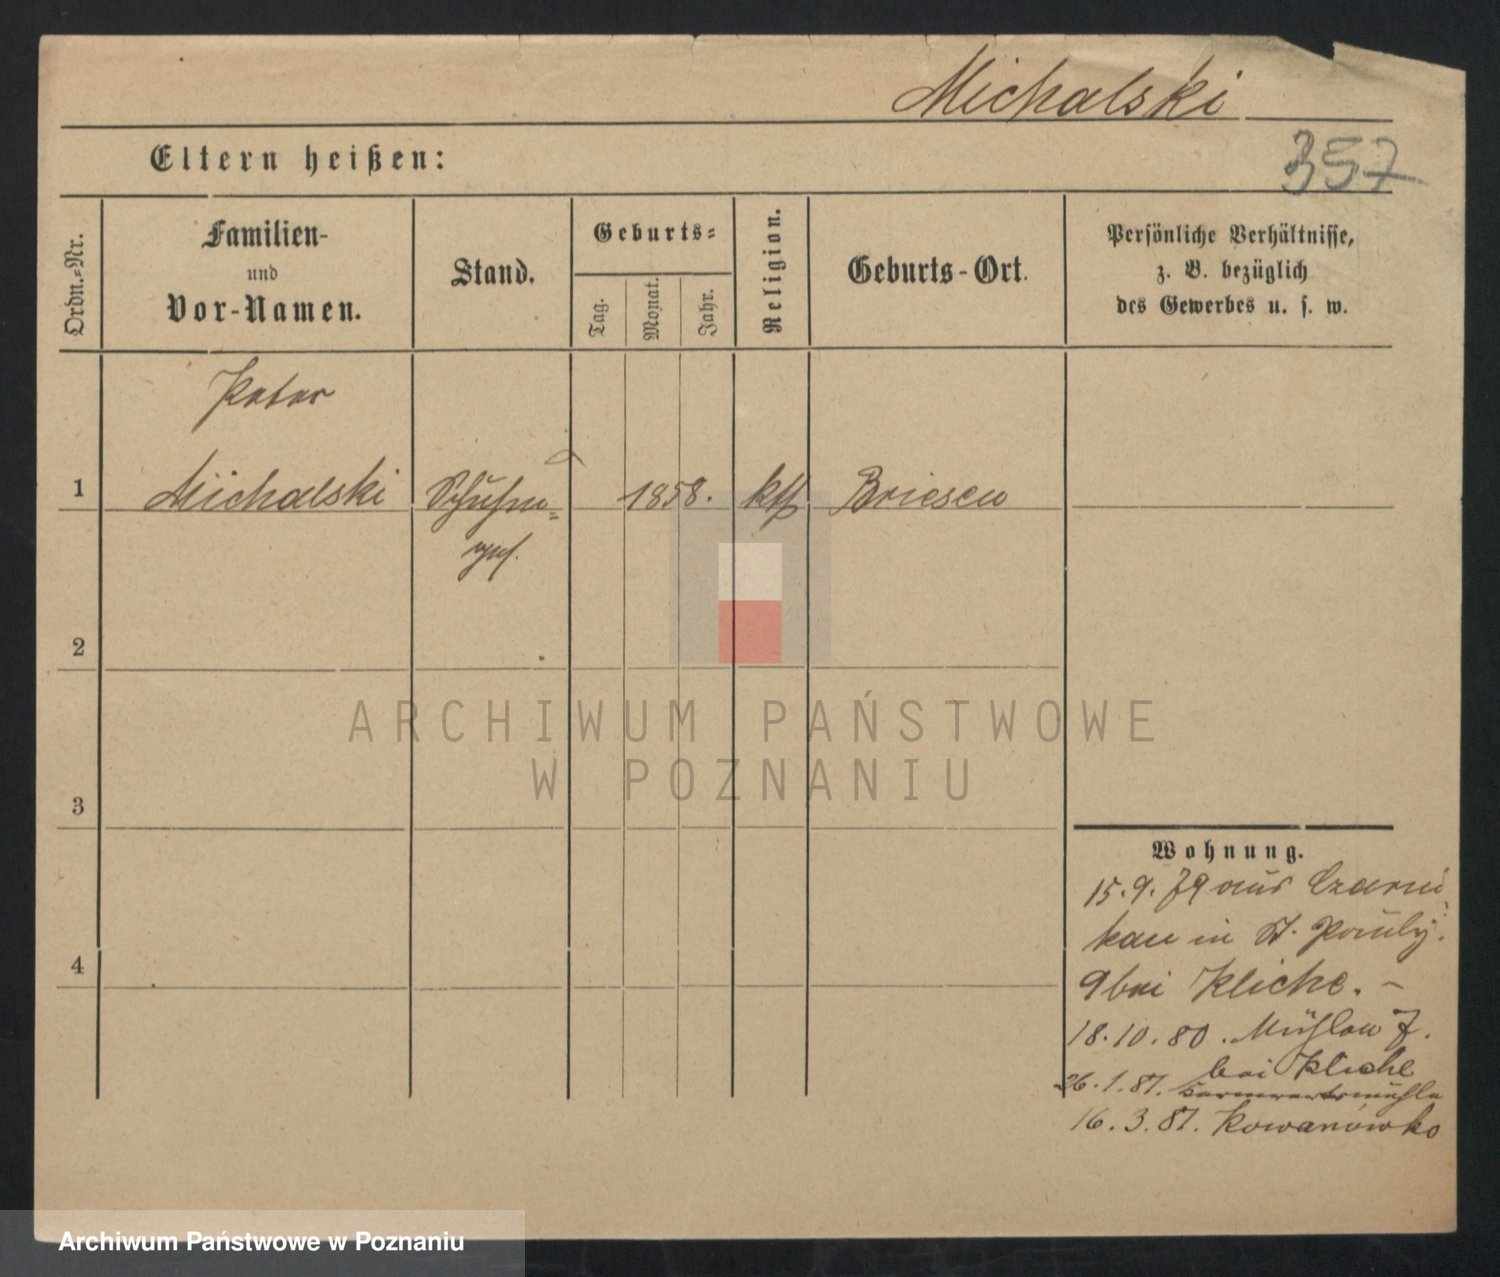 Michalski
Eltern heißen:
357
Ordn.-Nr.
Familien-
und
Vor-Namen.
Stand.
Geburts-
Tag.
Monat.
Jahr.
Religion.
Geburts-Ort.
Persönliche Verhältnisse,
z. B. bezüglich
des Gewerbes u. s. w.
Peter
1 Michalski Schuhm= 1858. kth Briesen
ges.
2
ARCHIWUM PAŃSTWOWE
W POZNANIU
3
Wohnung.
15.9.79 aus Czarni
kau in St. Pauly.
9 bei Kliche. –
18.10.80. Mühlen 7.
bei Kliche
26.1.81.
16.3.81. Kowanówko
4
Archiwum Państwowe w Poznaniu